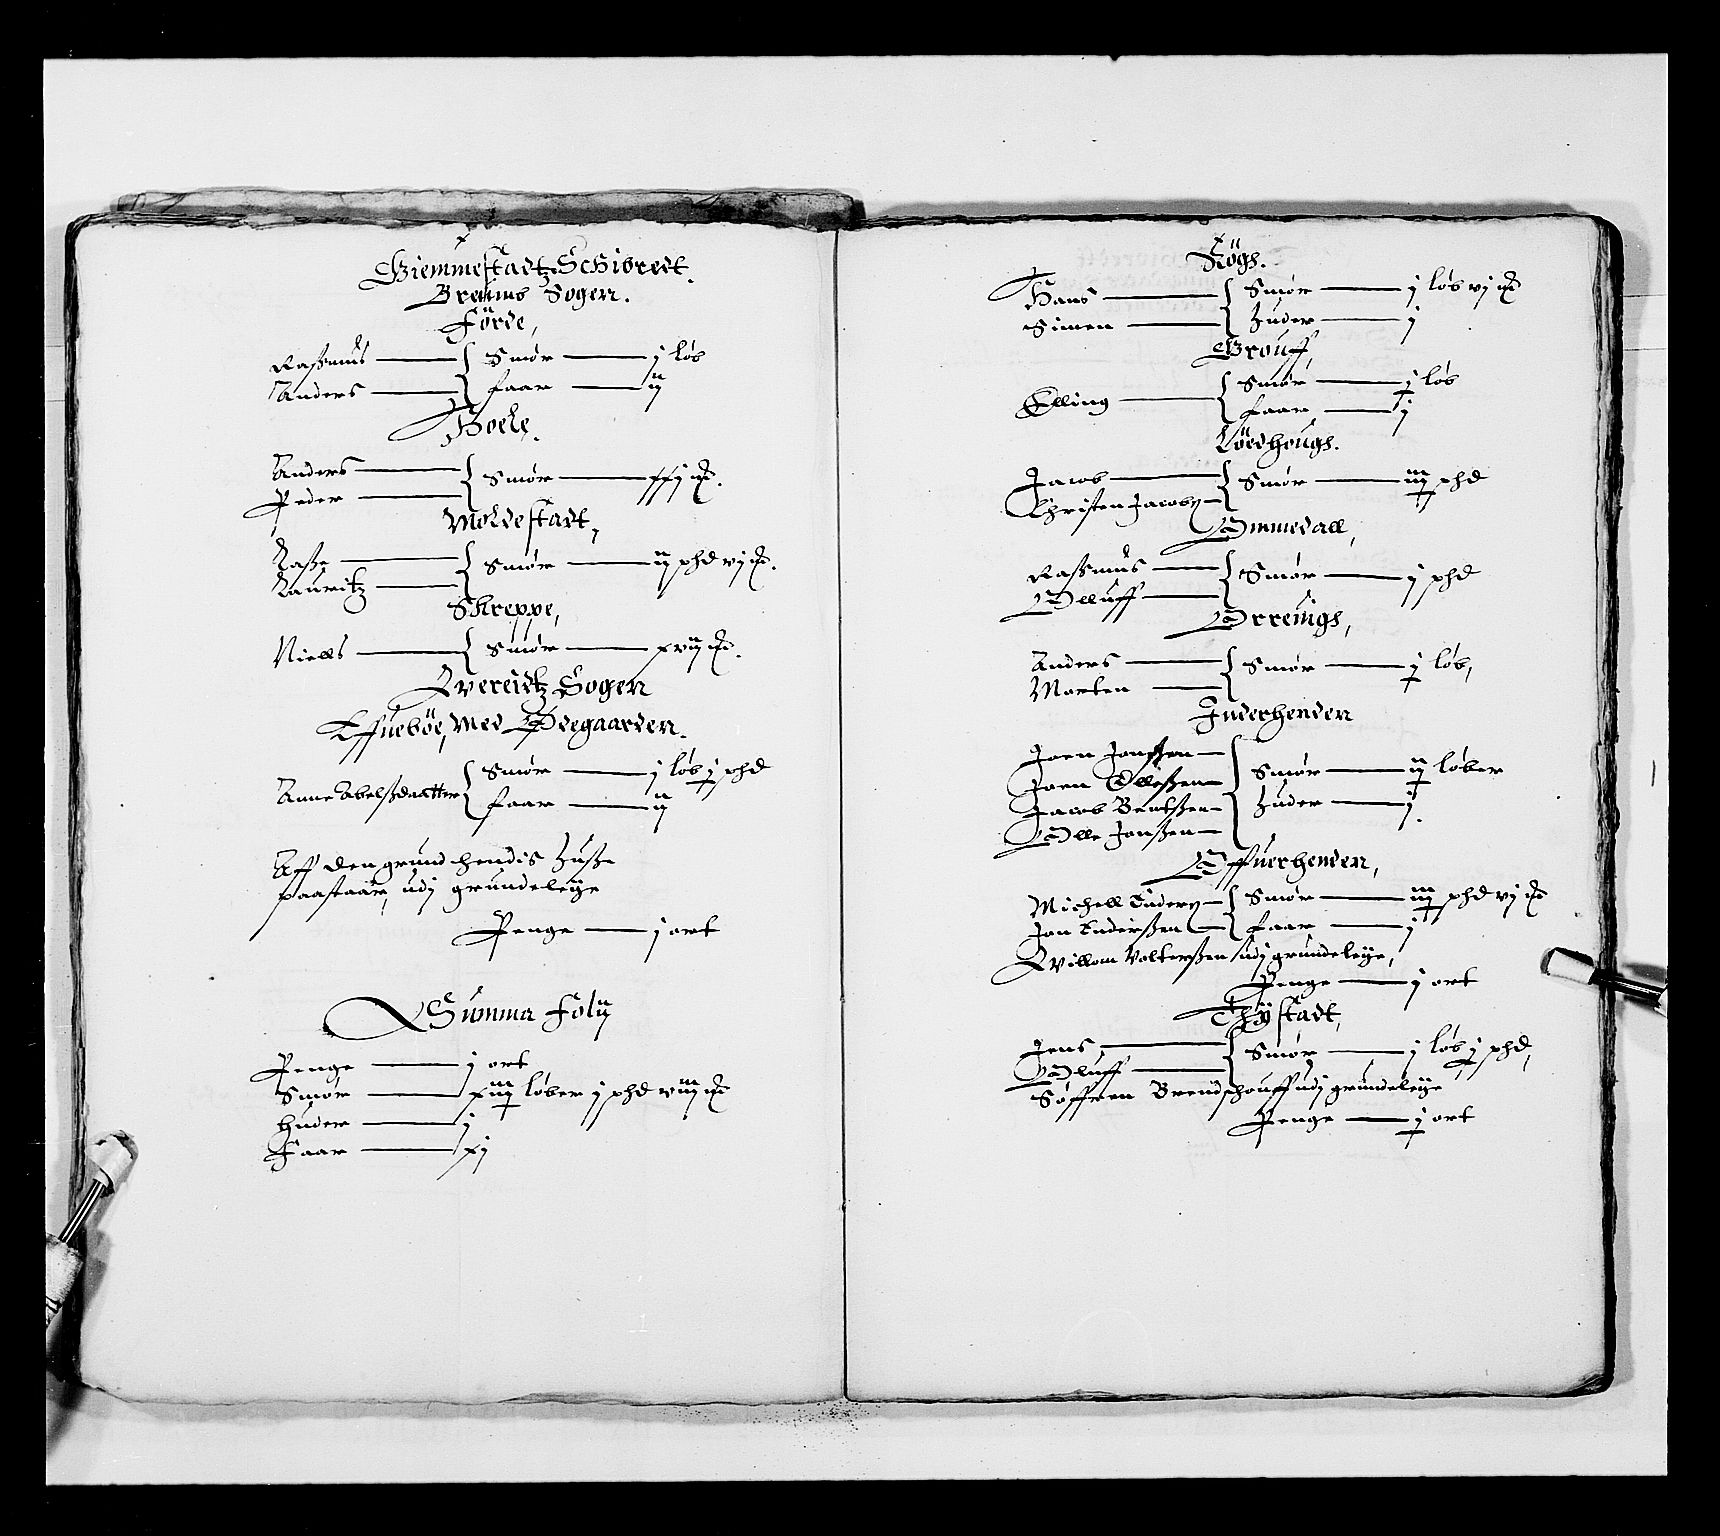 Giemmestadtz Schibredt.
Breims Sogen.
Förde,
Rassmus — Smør — j løb
Anders — faar — ij
Hoele.
Anders — Smør — ffj
Peder —
Moldestadt,
Lasse — Smør — ij phd vj
Lauritz —
Skreppe,
Niells — Smør — xvij
Qvereidtz Sogen
Effueböe, Med Ödegaarden.
Anne Abelsdaatter Smør — j løb j phd
faar — ij
Aff den grund hendis Huss
paastaar, udj grundeleije
Penge — j ort
Summa Folij
Penge — j ort
Smør — xiij løber j phd viij
Huder — j
Faar — xj
Högs.
Hans — Smør — j løb vj
Simen — Huder — j
Grouff,
Elling — Smør — j løb
faar — j
Lödhougs.
Jacob — Smør — iij phd
Christen Jacobs
Ommedall,
Rassmus — Smør — j phd
Olluff —
Orreings,
Anders — Smør — j løb,
Morten —
Inderhenden
Joen Jonssen — Smør — ij løber
Joen Ellessen — Huder — j.
Jacob Bentssen
Olle Jonssen —
Offuerhenden,
Michell Enders — Smør — iij phd vj
Jon Enderssen — faar — j
Qvillom Volterssen udj grundeleije,
Penge — j ort
Thÿstadt,
Jens, — Smør — j løb j phd,
Oluff —
Søffren Breidschouff udj grundeleije
Penge — j ort